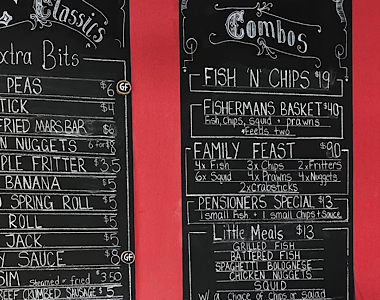 Classics
xtra Bits
PEAS $6 GF
TICK $4
FRIED MARS BAR $6
N NUGGETS 6 for $8
PLE FRITTER $3.5
BANANA $5
D SPRING ROLL $5
ROLL $5
JACK $5
Y SAUCE $8 GF
SIM Steamed or fried $3.50
BEEF CRUMBED SAUSAGE $5
Combos
FISH 'N' CHIPS $19
FISHERMANS BASKET $40
Fish, Chips, Squid + prawns
*Feeds two
FAMILY FEAST $90
4x Fish 3x Chips 2x Fritters
6x Squid 4x Prawns 4x Nuggets
2x Crabsticks
PENSIONERS SPECIAL $13
1 small Fish + 1 small Chips + Sauce
Little Meals $13
GRILLED FISH
BATTERED FISH
SPAGHETTI BOLOGNESE
CHICKEN NUGGETS
SQUID
w/ a choice of Chips or Salad